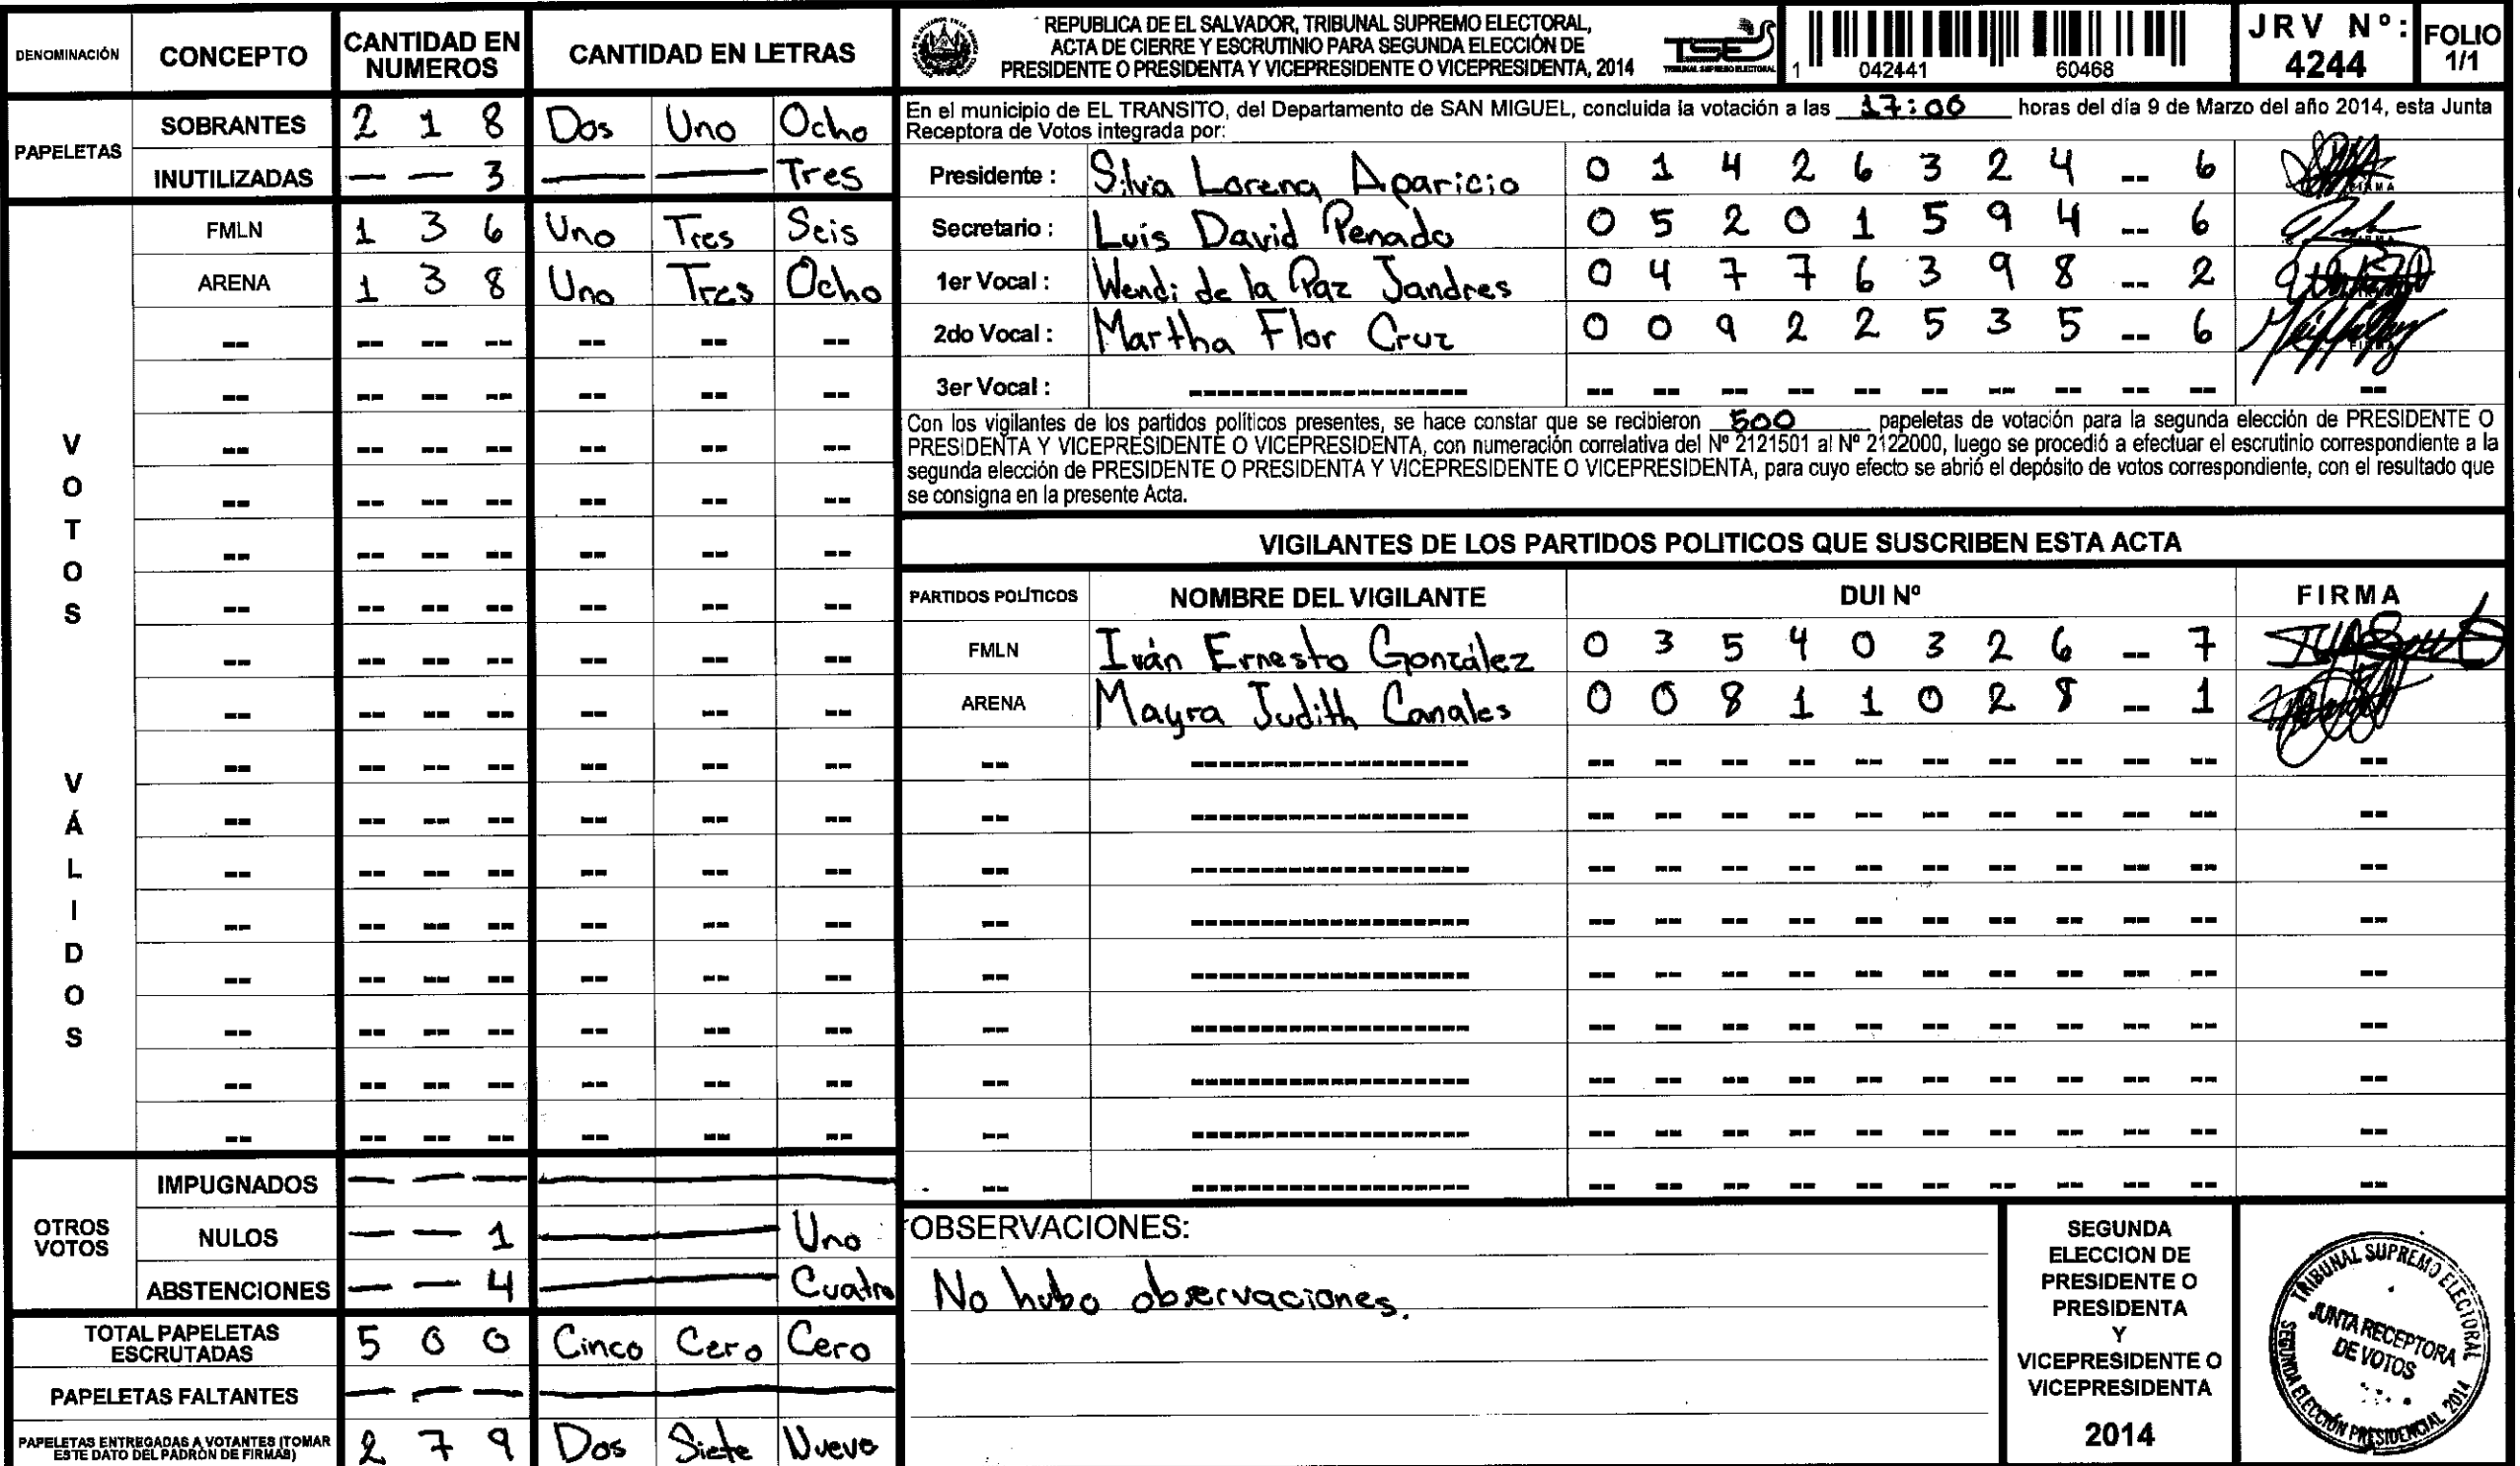 DENOMINACIÓN CONCEPTO CANTIDAD EN NUMEROS CANTIDAD EN LETRAS
PAPELETAS
SOBRANTES 2 1 8 Dos Uno Ocho
INUTILIZADAS — — 3 — — Tres
VOTOS VÁLIDOS
FMLN 1 3 6 Uno Tres Seis
ARENA 1 3 8 Uno Tres Ocho
OTROS VOTOS
IMPUGNADOS — — — —
NULOS — — 1 — Uno
ABSTENCIONES — — 4 — Cuatro
TOTAL PAPELETAS ESCRUTADAS 5 0 0 Cinco Cero Cero
PAPELETAS FALTANTES — — — —
PAPELETAS ENTREGADAS A VOTANTES (TOMAR ESTE DATO DEL PADRÓN DE FIRMAS) 2 7 9 Dos Siete Nueve
REPUBLICA DE EL SALVADOR, TRIBUNAL SUPREMO ELECTORAL,
ACTA DE CIERRE Y ESCRUTINIO PARA SEGUNDA ELECCIÓN DE
PRESIDENTE O PRESIDENTA Y VICEPRESIDENTE O VICEPRESIDENTA, 2014
TSE
TRIBUNAL SUPREMO ELECTORAL
1 042441 60468
JRV Nº: 4244
FOLIO 1/1
En el municipio de EL TRANSITO, del Departamento de SAN MIGUEL, concluida la votación a las 17:00 horas del día 9 de Marzo del año 2014, esta Junta
Receptora de Votos integrada por:
Presidente : Silvia Lorena Aparicio 0 1 4 2 6 3 2 4 -- 6 FIRMA
Secretario : Luis David Penado 0 5 2 0 1 5 9 4 -- 6 FIRMA
1er Vocal : Wendi de la Paz Jandres 0 4 7 7 6 3 9 8 -- 2
2do Vocal : Martha Flor Cruz 0 0 9 2 2 5 3 5 -- 6 FIRMA
3er Vocal : -------------------- -- -- -- -- -- -- -- -- -- -- --
Con los vigilantes de los partidos políticos presentes, se hace constar que se recibieron 500 papeletas de votación para la segunda elección de PRESIDENTE O
PRESIDENTA Y VICEPRESIDENTE O VICEPRESIDENTA, con numeración correlativa del Nº 2121501 al Nº 2122000, luego se procedió a efectuar el escrutinio correspondiente a la
segunda elección de PRESIDENTE O PRESIDENTA Y VICEPRESIDENTE O VICEPRESIDENTA, para cuyo efecto se abrió el depósito de votos correspondiente, con el resultado que
se consigna en la presente Acta.
VIGILANTES DE LOS PARTIDOS POLITICOS QUE SUSCRIBEN ESTA ACTA
PARTIDOS POLÍTICOS NOMBRE DEL VIGILANTE DUI Nº FIRMA
FMLN Iván Ernesto González 0 3 5 4 0 3 2 6 -- 7
ARENA Mayra Judith Canales 0 0 8 1 1 0 2 8 -- 1
OBSERVACIONES:
No hubo observaciones.
SEGUNDA
ELECCION DE
PRESIDENTE O
PRESIDENTA
Y
VICEPRESIDENTE O
VICEPRESIDENTA
2014
TRIBUNAL SUPREMO ELECTORAL
JUNTA RECEPTORA
DE VOTOS
SEGUNDA ELECCIÓN PRESIDENCIAL 2014